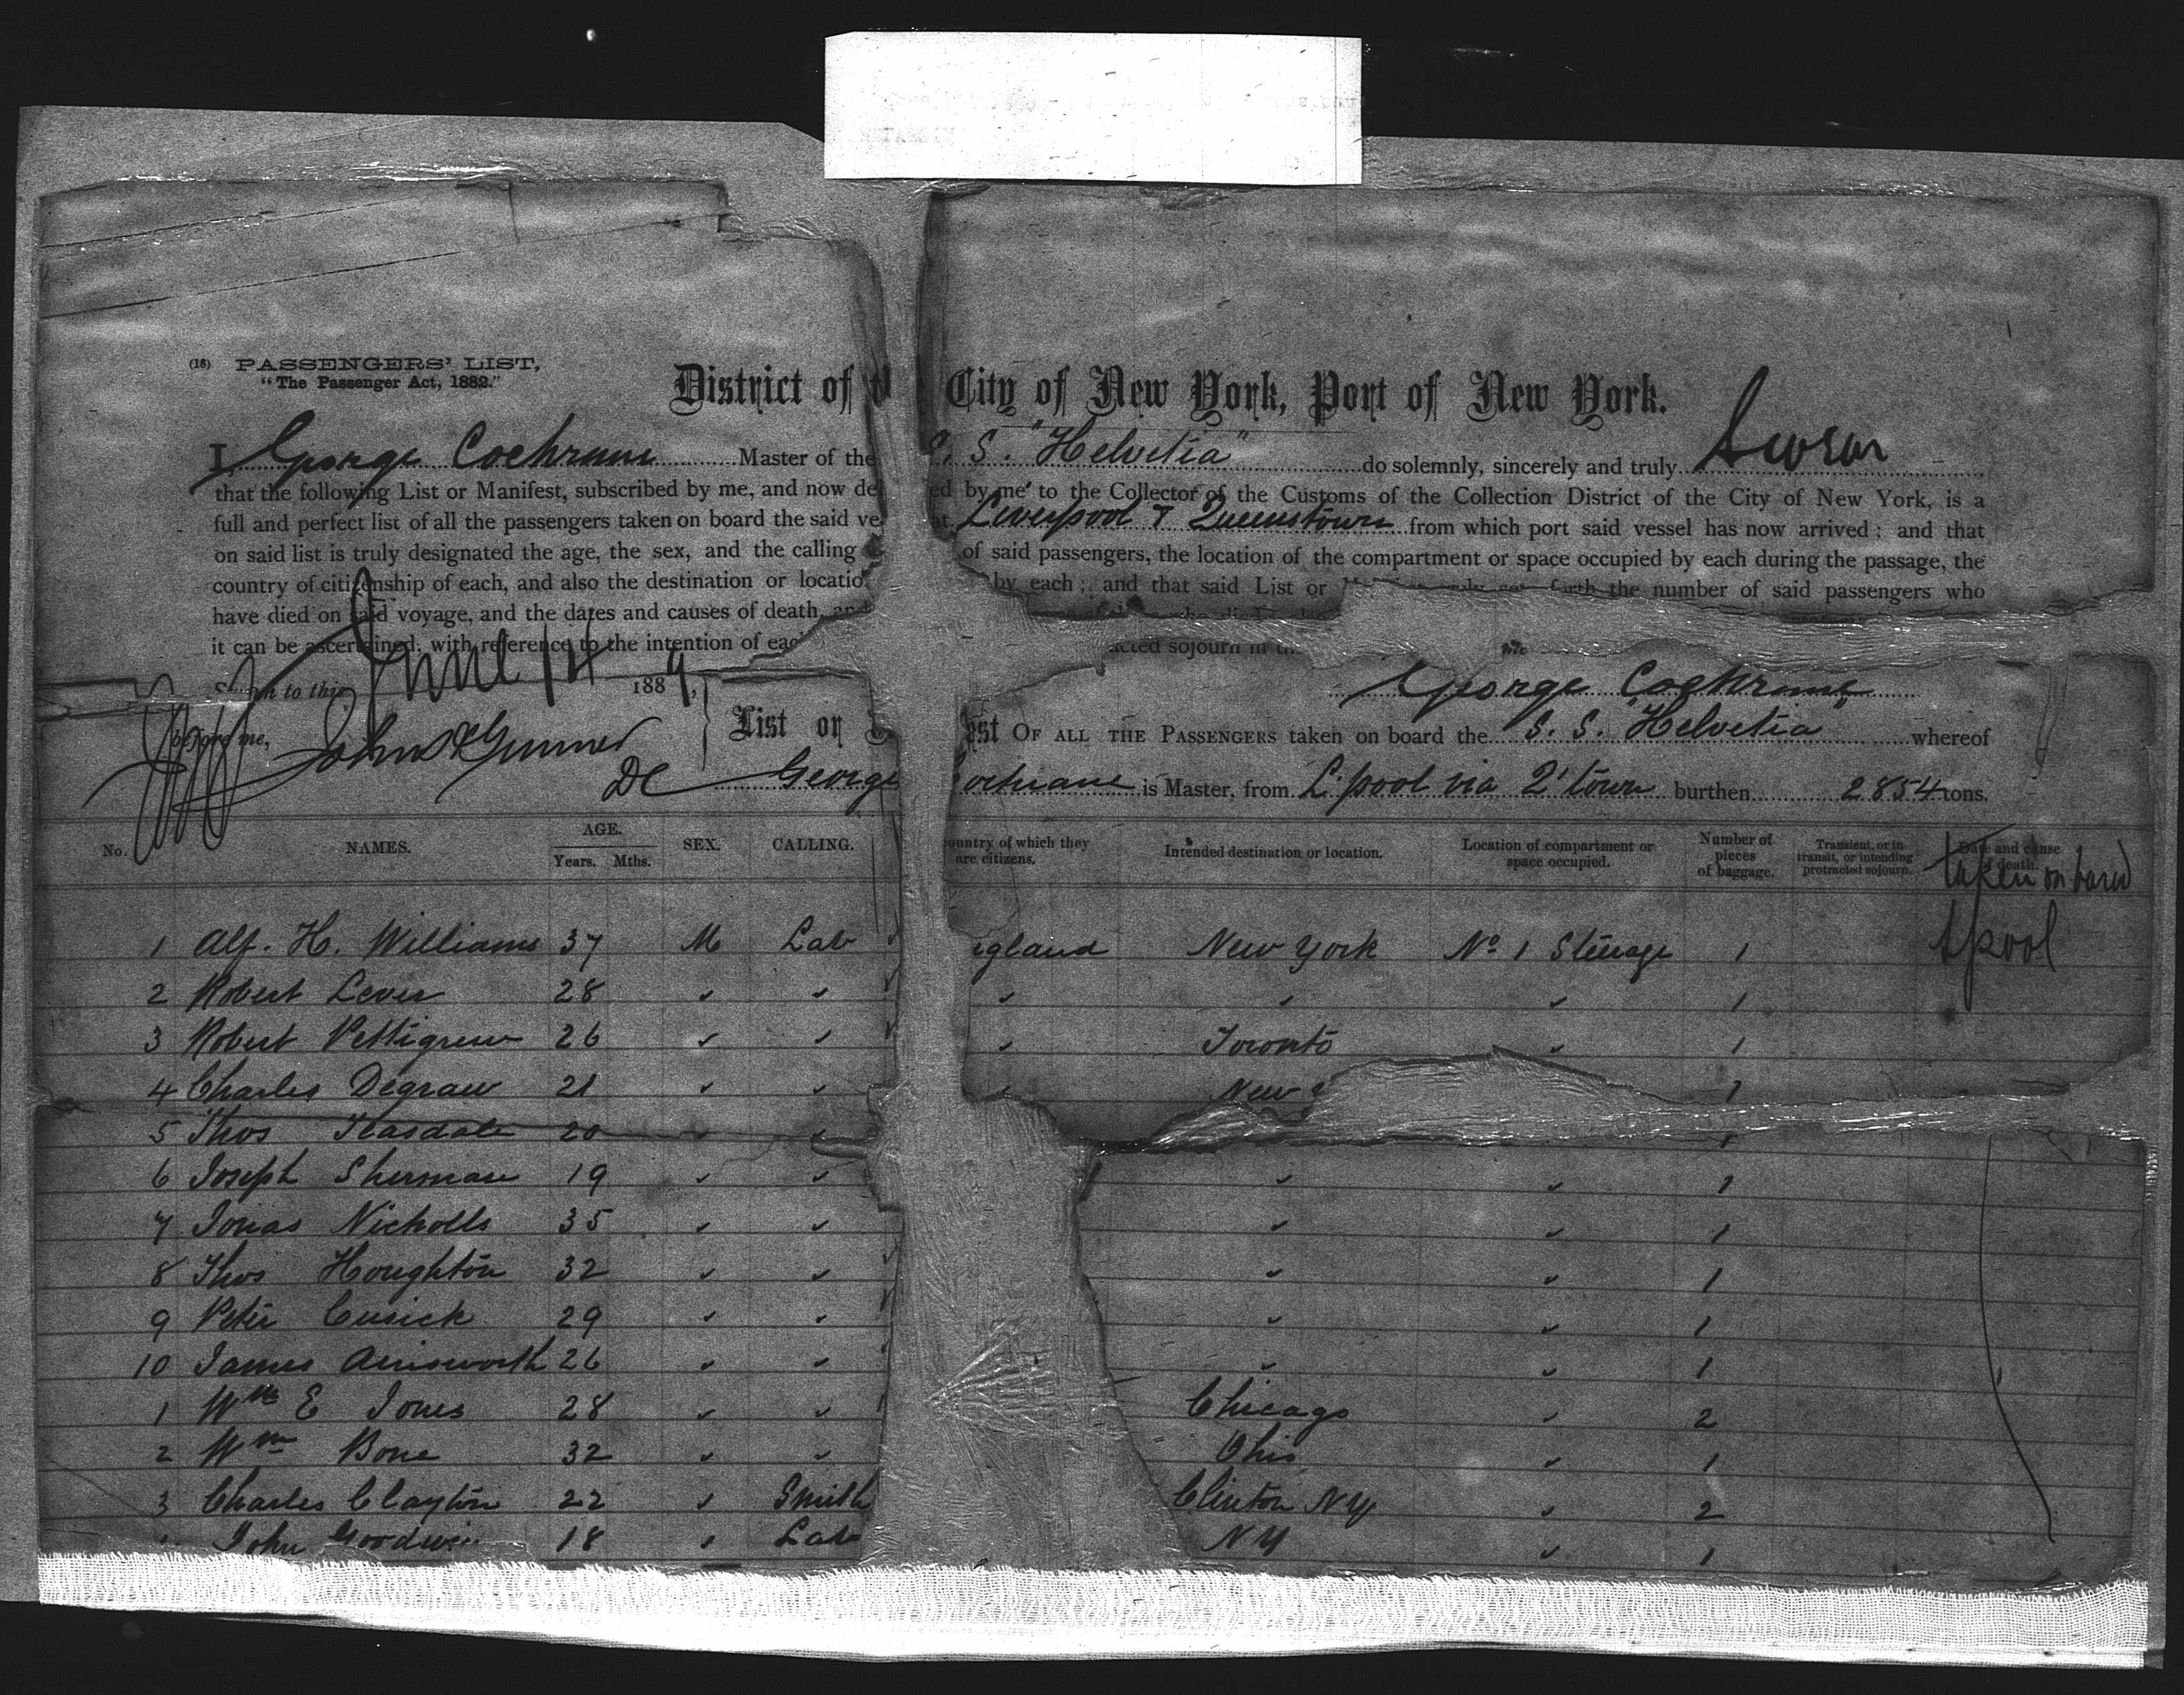 (18) PASSENGERS' LIST,
"The Passenger Act, 1882."
District of City of New York, Port of New York.
I, George Cochrane Master of the S. S. "Helvetia" do solemnly, sincerely and truly Swear
that the following List or Manifest, subscribed by me, and now de ed by me to the Collector of the Customs of the Collection District of the City of New York, is a
full and perfect list of all the passengers taken on board the said ve at Liverpool & Queenstown from which port said vessel has now arrived; and that
on said list is truly designated the age, the sex, and the calling of said passengers, the location of the compartment or space occupied by each during the passage, the
country of citizenship of each, and also the destination or locatio by each; and that said List or the number of said passengers who
have died on said voyage, and the dates and causes of death, and
it can be ascertained, with reference to the intention of eac acted sojourn in
Sworn to this June 14 1889, George Cochrane
before me, John Gunner
DC
List or est OF ALL THE PASSENGERS taken on board the S. S. "Helvetia" whereof
George ochrane is Master, from L'pool via Q'town burthen 2854 tons.
No. NAMES. AGE. Years. Mths. SEX. CALLING. ountry of which they are citizens. Intended destination or location. Location of compartment or space occupied. Number of pieces of baggage. Transient, or in transit, or intending protracted sojourn. Date and cause of death.
taken on board
Lpool
1 Alf. H. Williams 37 M Lab ngland New York No 1 Steerage 1
2 Robert Lever 28 ✓ ✓ ✓ ✓ ✓ 1
3 Robert Pettigrew 26 ✓ ✓ ✓ Toronto ✓ 1
4 Charles Degraw 21 ✓ ✓ ✓ New Y 1
5 Thos Teasdale 20 ✓ ✓ 1
6 Joseph Sherman 19 ✓ ✓ ✓ ✓ 1
7 Jonas Nicholls 35 ✓ ✓ ✓ ✓ 1
8 Thos Houghton 32 ✓ ✓ ✓ ✓ 1
9 Peter Cusick 29 ✓ ✓ ✓ ✓ 1
10 James Ainsworth 26 ✓ ✓ ✓ ✓ 1
1 Wm E Jones 28 ✓ ✓ Chicago ✓ 2
2 Wm Bone 32 ✓ ✓ Ohio ✓ 1
3 Charles Clayton 22 ✓ Smith Clinton NY ✓ 2
John Goodwin 18 ✓ Lab NY ✓ 1